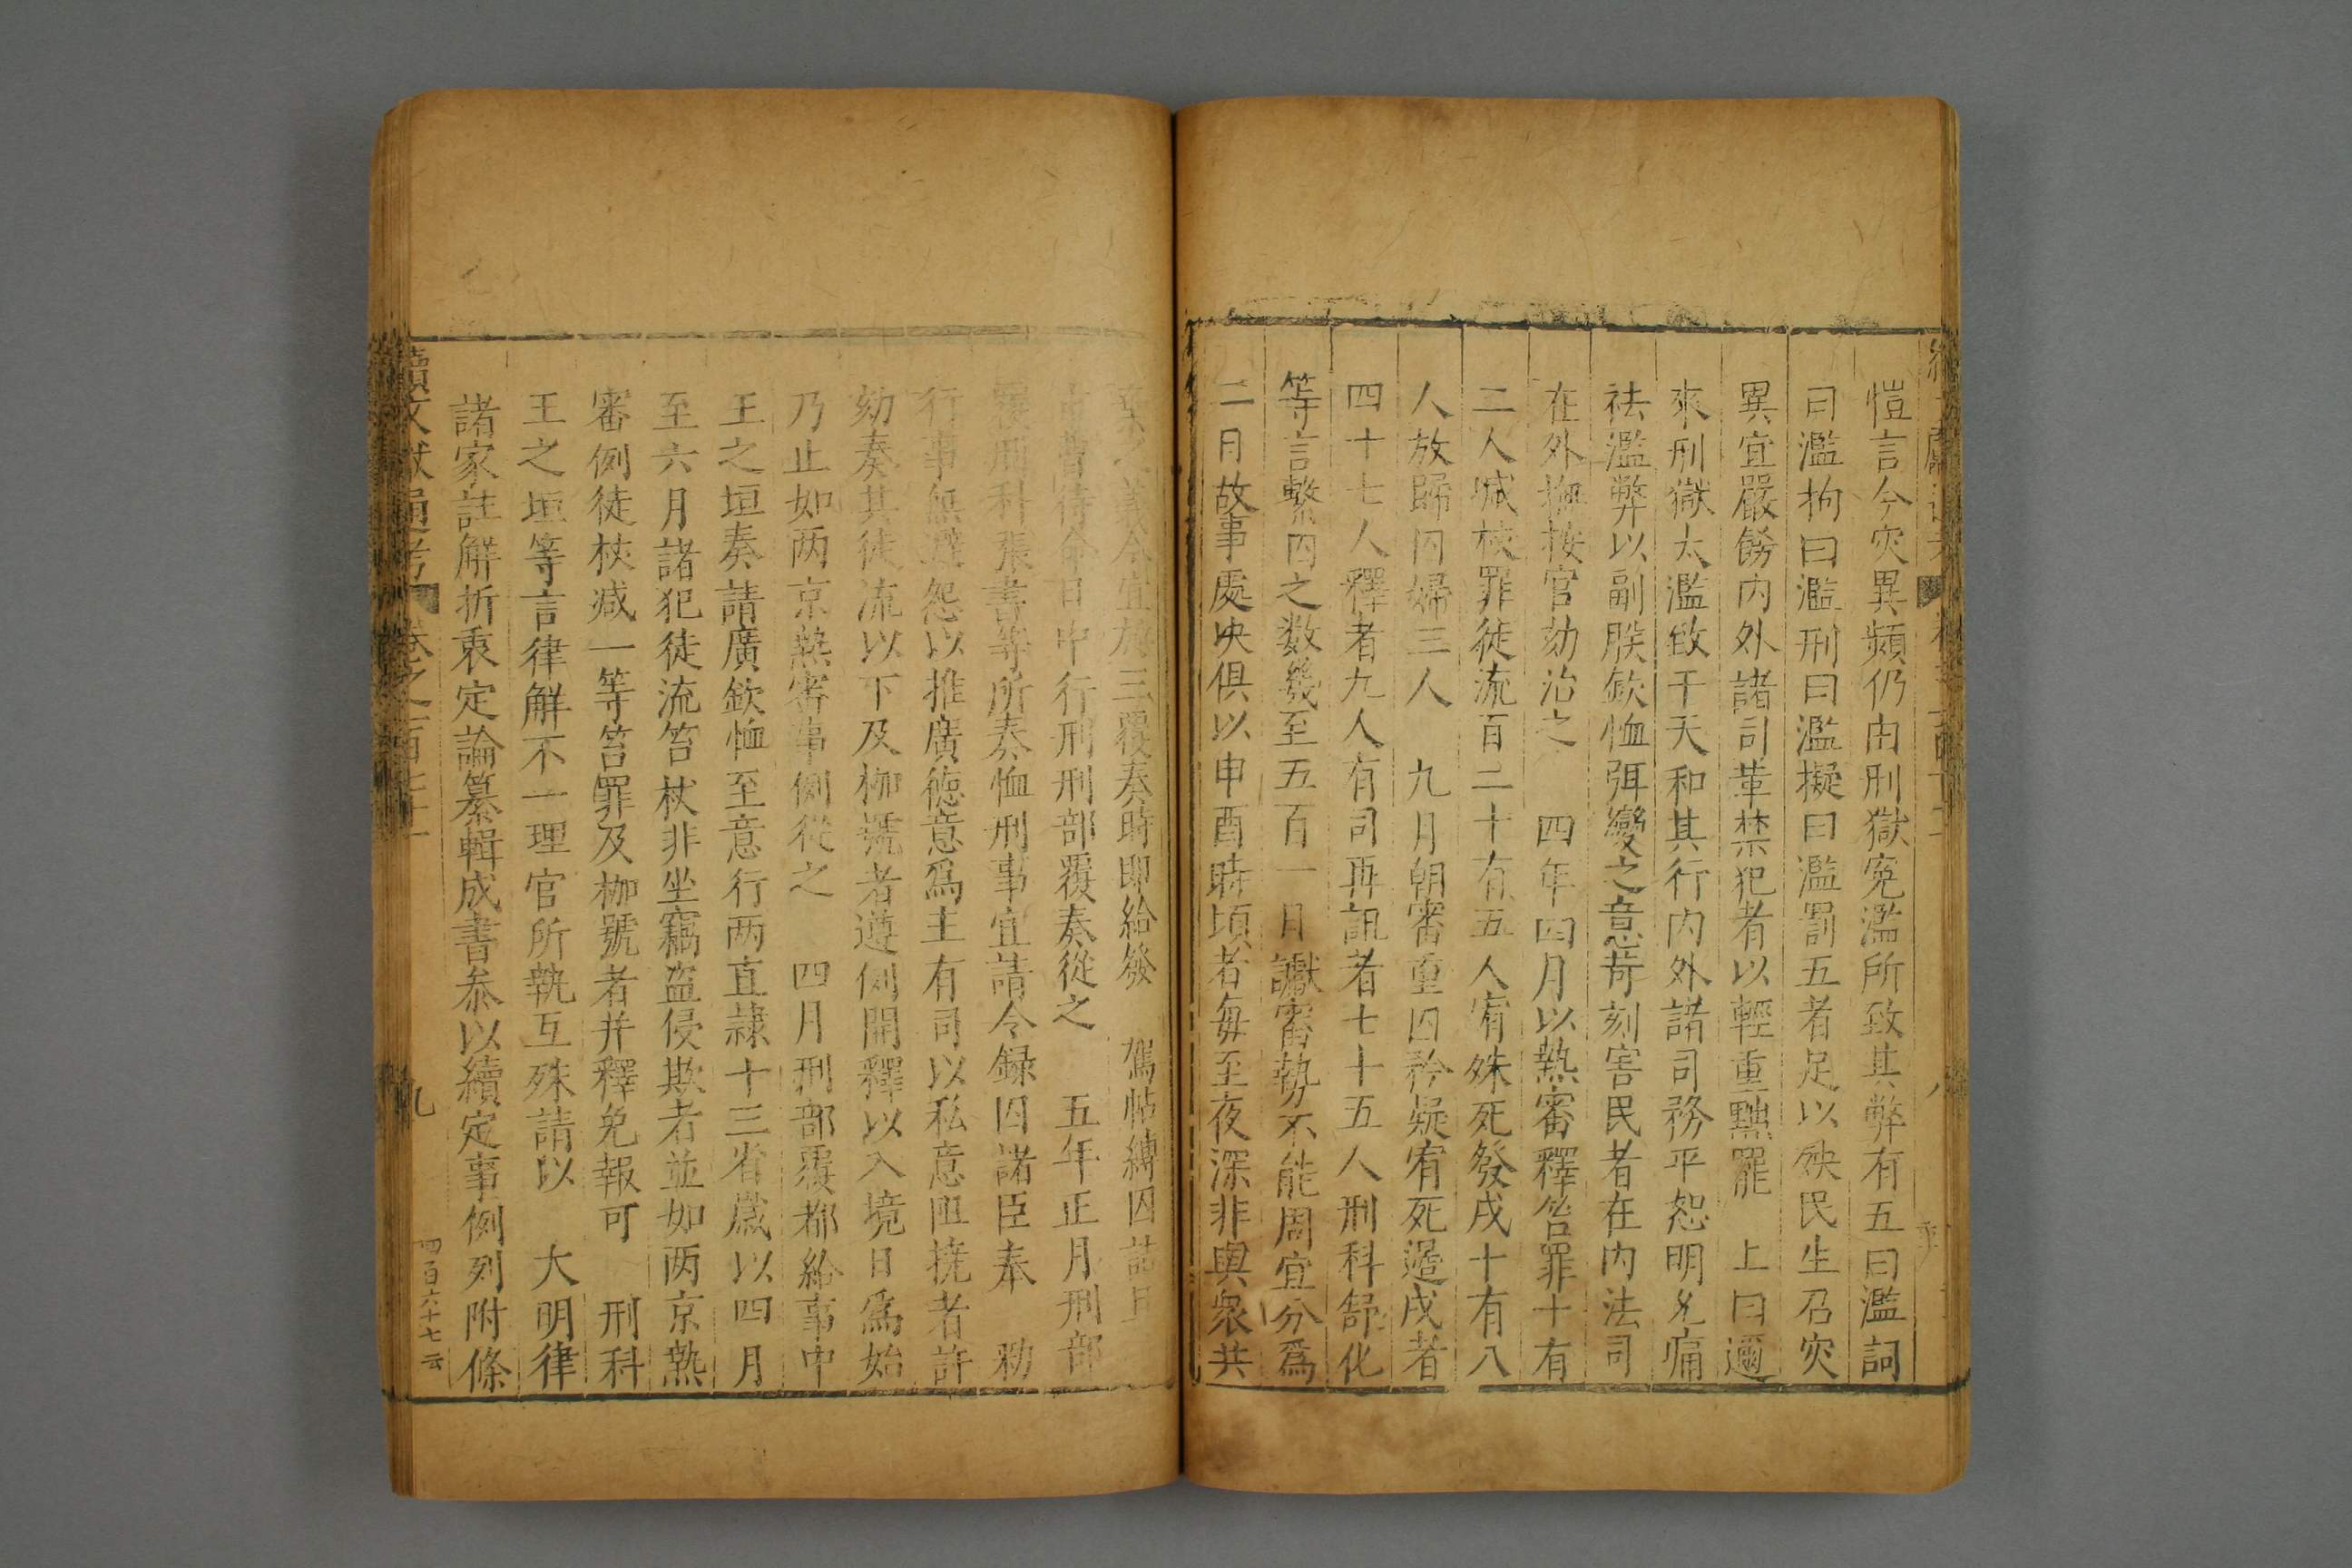 愷言今灾異頻仍由刑獄寃濫所致其弊有五曰濫詞
曰濫拘曰濫刑曰濫擬曰濫罰五者足以殃民生召灾
異宜嚴飭内外諸司革禁犯者以輕重黜罷　上曰邇
來刑獄太濫致干天和其行内外諸司務平恕明允痛
祛濫弊以副朕欽恤弭變之意苛刻害民者在内法司
在外撫按官劾治之　四年四月以熱審釋笞罪十有
二人減杖罪徒流百二十有五人宥殊死發戍十有八
人放歸囚婦三人　九月朝審重囚矜疑宥死邊戍者
四十七人釋者九人有司再訊者七十五人刑科舒化
等言繫囚之数幾至五百一日讞審勢不能周宜分爲
二日故事處决俱以申酉時頃者每至夜深非與衆共
三覆奏時即給發　駕帖縛囚
日中行刑刑部覆奏從之　五年正月刑部
覆刑科張書等所奏恤刑事宜請令録囚諸臣奉　勑
行事無避怨以推廣德意爲主有司以私意阻撓者許
劾奏其徒流以下及枷號者遵例開釋以入境日爲始
乃止如两京熱審事例從之　四月刑部覆都給事中
王之垣奏請廣欽恤至意行两直隷十三省歲以四月
至六月諸犯徒流笞杖非坐竊盗侵欺者並如两京熱
審例徒杖减一等笞罪及枷號者并釋免報可　刑科
王之垣等言律解不一理官所執互殊請以　大明律
諸家註解折衷定論纂輯成書叅以續定事例列附條
續文獻通考　卷之一百七十一　九　四百六十七云